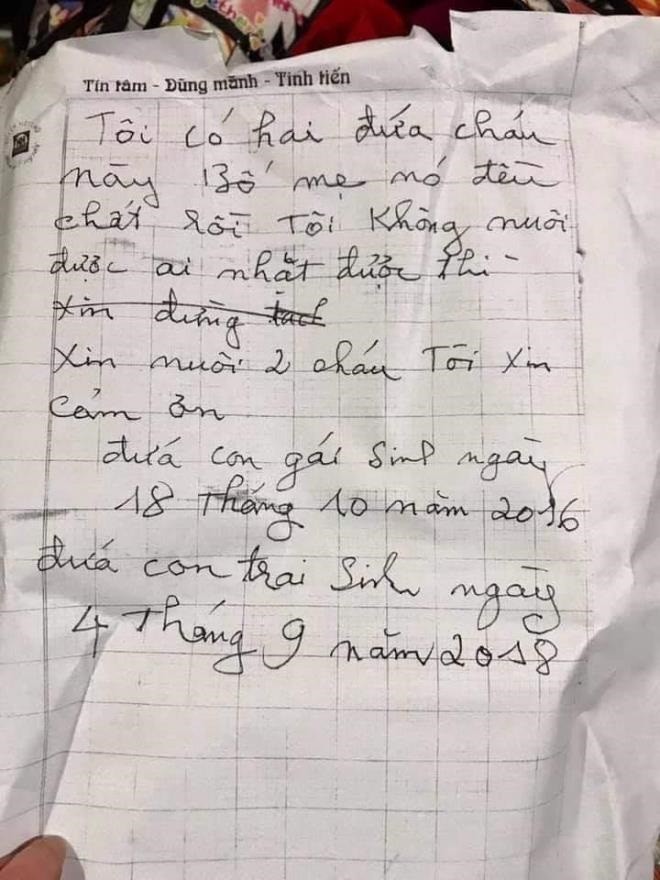 Tín tâm - Dũng mãnh - Tinh tiến
Tôi có hai đứa cháu
này Bố mẹ nó đều
chất rồi Tôi không nuôi
được ai nhặt được thì
xin đừng tach
Xin nuôi 2 cháu Tôi xin
Cảm ơn
đứa con gái sinh ngày
18 Tháng 10 năm 2016
đứa con trai sinh ngày
4 Tháng 9 năm 2018